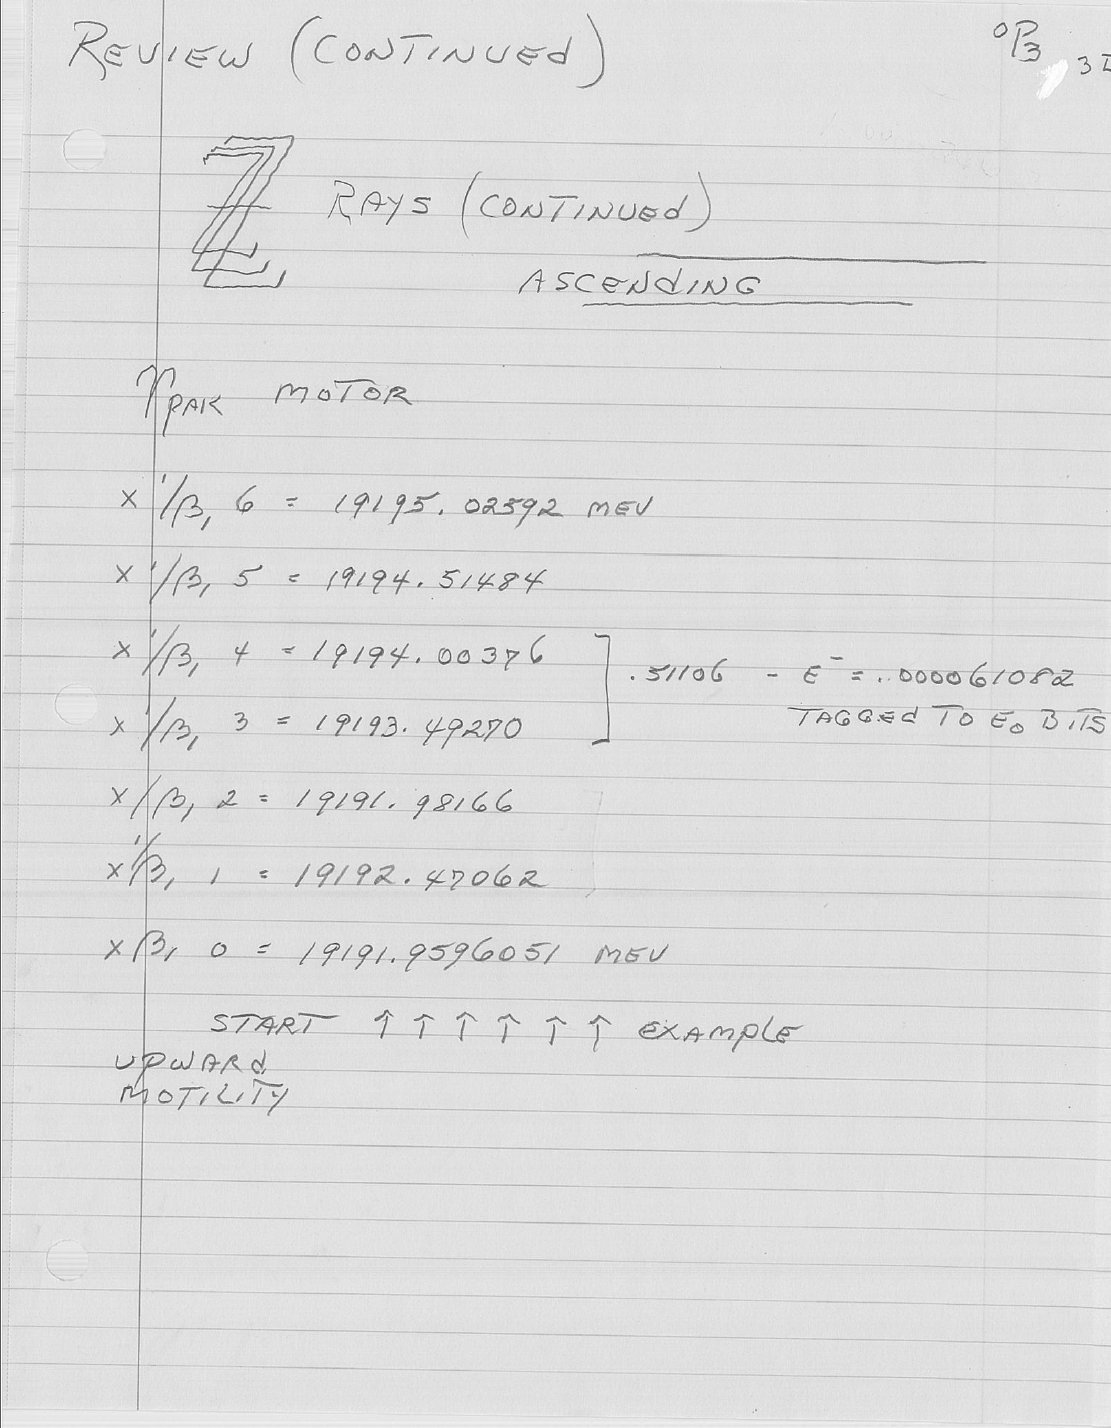 REVIEW (CONTINUED)
°P3, 3I
Z RAYS (CONTINUED)
ASCENDING
↑PAK MOTOR
X'/β, 6 = 19195.02592 MEV
X'/β, 5 = 19194.51484
X'/β, 4 = 19194.00376
] .51106 - E⁻ = .000061082
TAGGED TO E₀ BITS
X'/β, 3 = 19193.49270
X/β, 2 = 19191.98166
X'/β, 1 = 19192.47062
Xβ, 0 = 19191.9596051 MEV
START ↑ ↑ ↑ ↑ ↑ ↑ EXAMPLE
UPWARD
MOTILITY